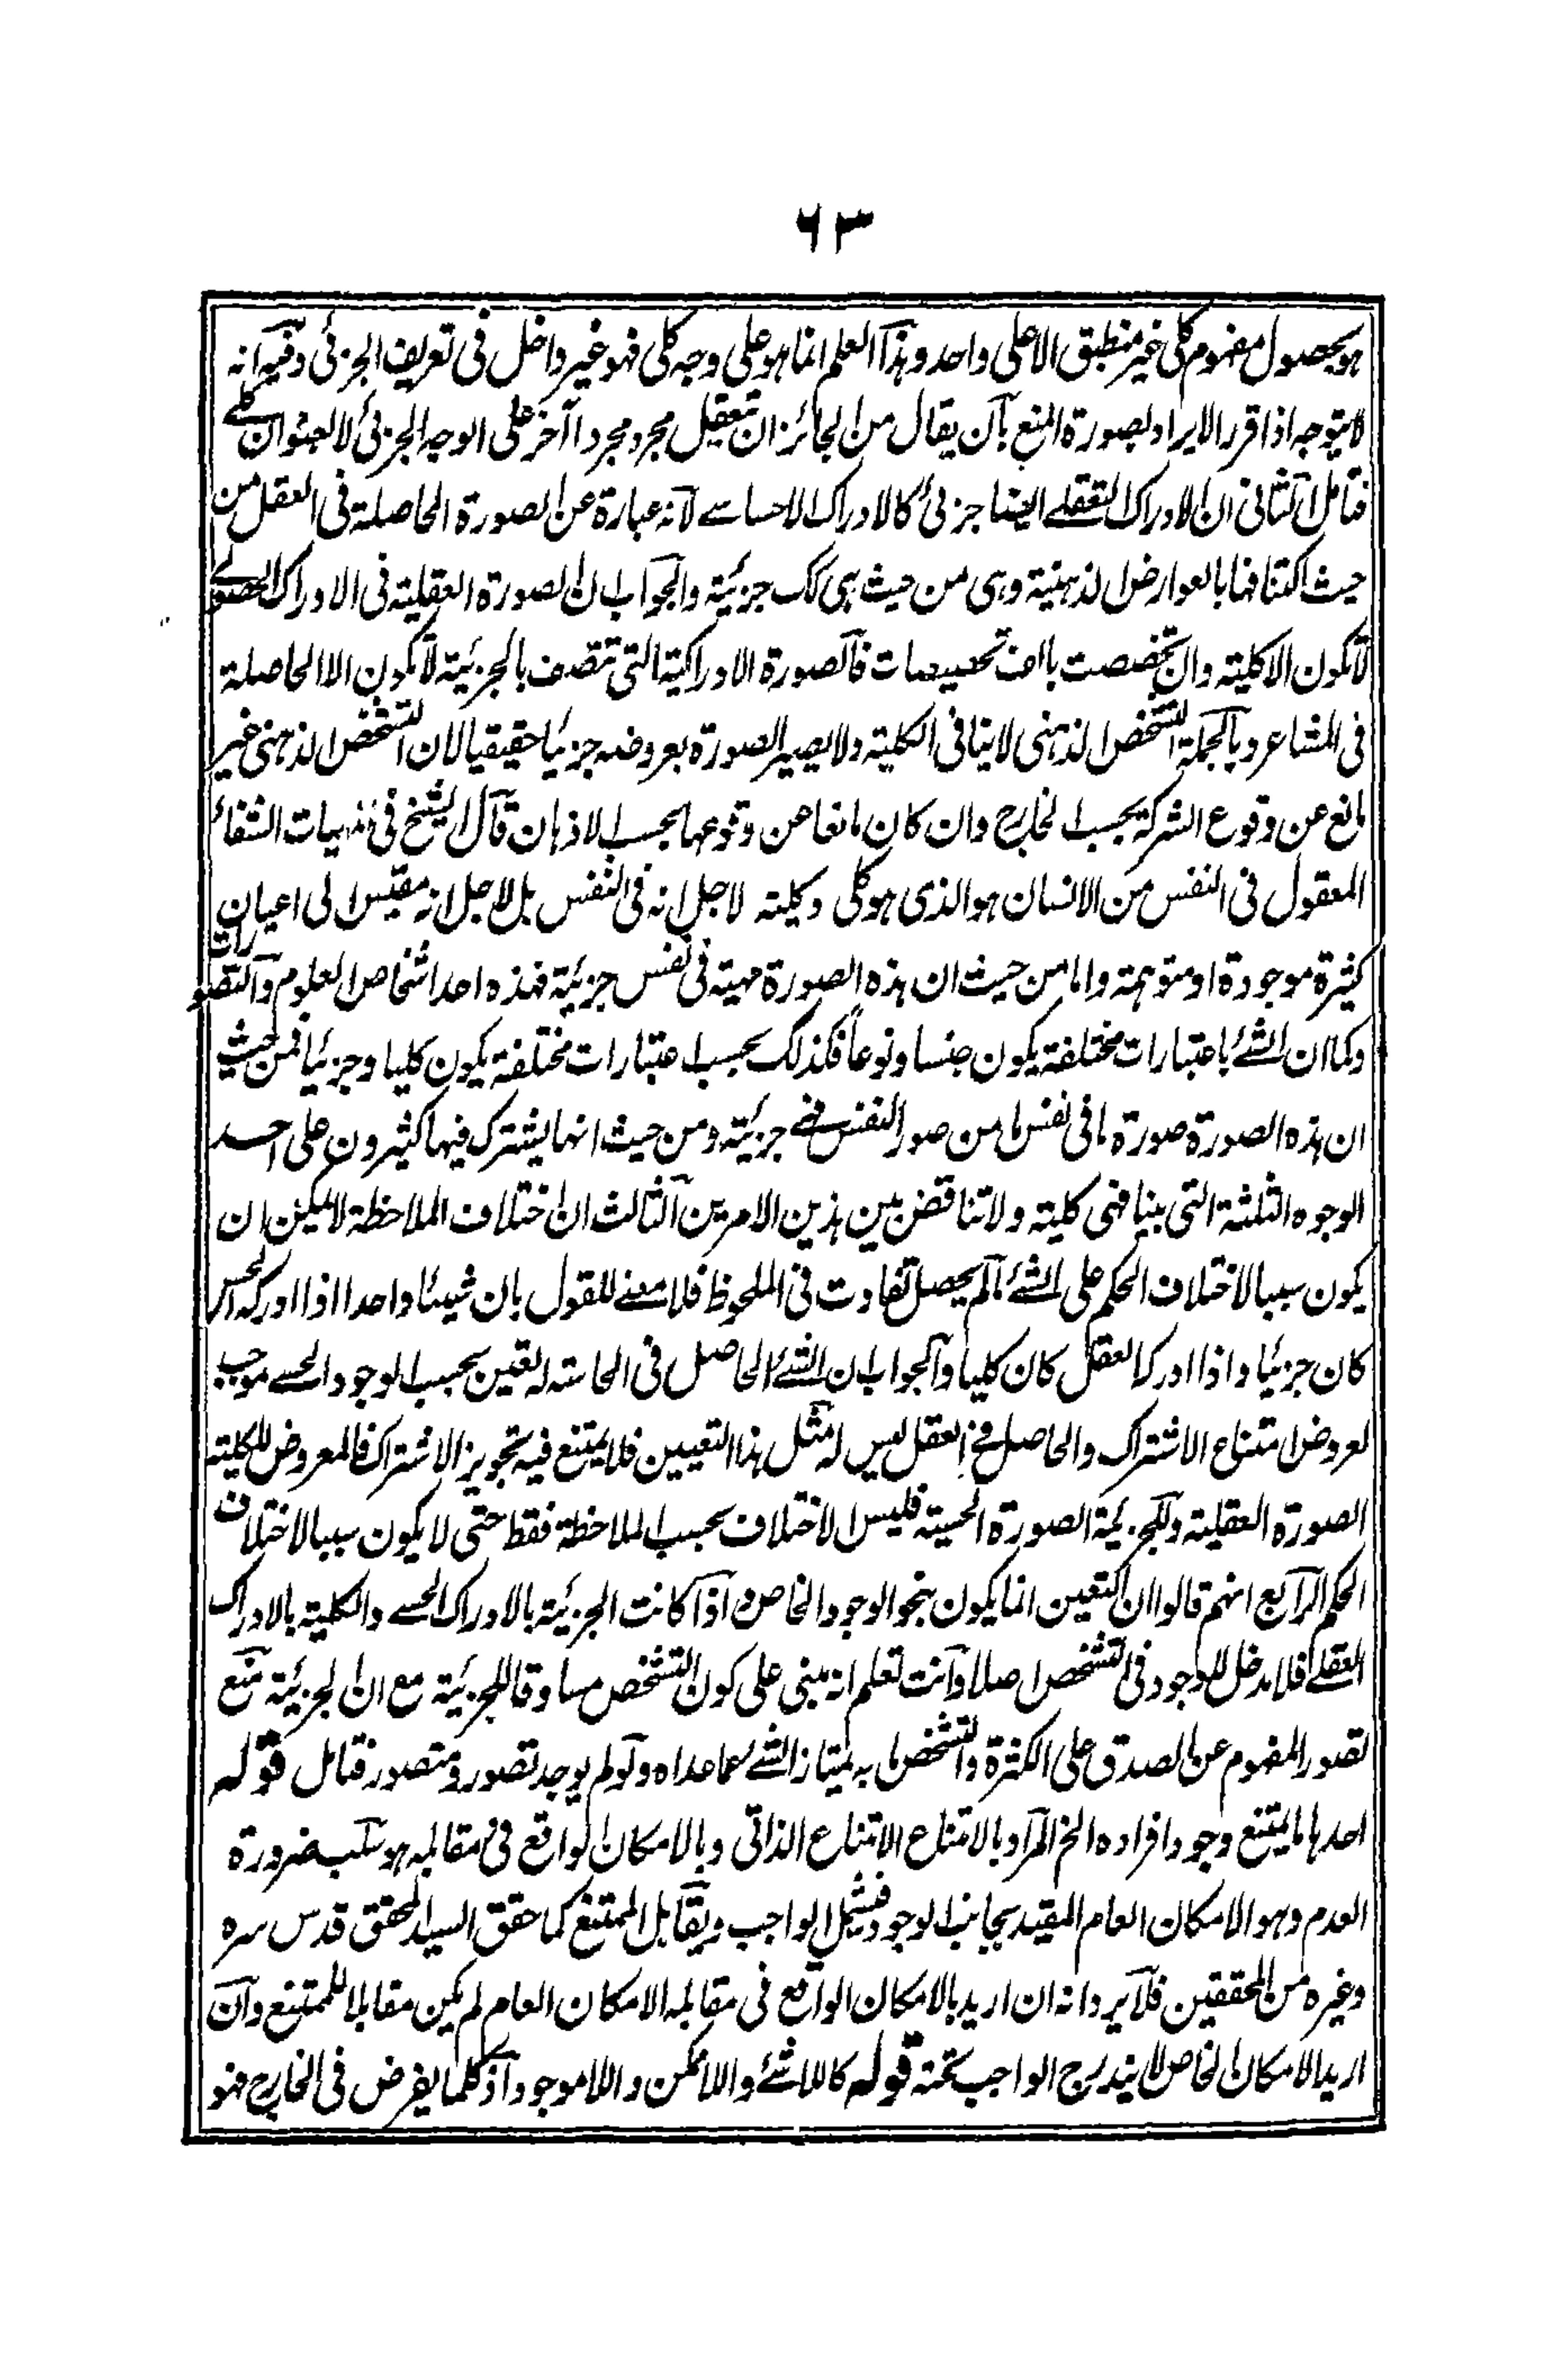 ٦٣
هو بحصول مفهوم كلى غير منطبق الا على واحد وهذا العلم انما هو على وجه كلى فهو غير داخل فى تعريف الجزئى وفيه انه
لا يتوجه اذا قرر الايراد بصورة المنع بان يقال من الجائز ان تعقل مجرد مجردا آخر على الوجه الجزئى لا بعنوان كلے
فتامل الثانى ان الادراك التعقلے ايضا جزئى كالادراك الاحساسے لانه عبارة عن الصورة الحاصلة فى العقل من
حيث اكتنافها بالعوارض الذهنية وهى من حيث هى كك جزئية والجواب ان الصورة العقلية فى الادراك الحصولے
لا تكون الا كلية وان تخصصت بالف تخصيصات فالصورة الادراكية التى تتصف بالجزئية لا تكون الا الحاصلة
فى المشاعر وبالجملة التشخص الذهنى لا ينافى الكلية ولا يصير الصورة بعروضه جزئيا حقيقيا لان التشخص الذهنى غير
مانع عن وقوع الشركة بحسب الخارج وان كان مانعا عن وقوعها بحسب الاذهان قال الشيخ فى الهيات الشفاء
المعقول فى النفس من الانسان هو الذى هو كلى وكليته لا لاجل انه فى النفس بل لاجل انه مقيس الى اعيان
كثيرة موجودة او متوهمة واما من حيث ان هذه الصورة هيئة فى نفس جزئية فهذه احد اشخاص العلوم والتصورات
وكما ان الشئ باعتبارات مختلفة يكون جنسا ونوعاً فكذلك بحسب اعتبارات مختلفة يكون كليا وجزئيا فمن حيث
ان هذه الصورة صورة ما فى نفس ما من صور النفس فهے جزئية ومن حيث انها يشترك فيها كثيرون على احد
الوجوه الثلثة التى بينا فهى كلية ولا تناقض بين هذين الامرين الثالث ان اختلاف الملاحظة لا يمكن ان
يكون سببا لاختلاف الحكم على الشئ ما لم يحصل تفاوت فى الملحوظ فلا معنے للقول بان شيئا واحدا اذا ادركه الحس
كان جزئيا واذا ادركه العقل كان كليا والجواب ان الشئ الحاصل فى الحاسة له تعين بحسب الوجود الحسے موجب
لعروض امتناع الاشتراك والحاصل فے العقل ليس له مثل هذا التعيين فلا يمتنع فيه تجويز الاشتراك فالمعروض للكلية
الصورة العقلية وللجزئية الصورة الحسية فليس الاختلاف بحسب الملاحظة فقط حتى لا يكون سببا لاختلاف
الحكم الرابع انهم قالوا ان التعين انما يكون بنحو الوجود الخاص واذا كانت الجزئية بالادراك الحسے والكلية بالادراك
العقلے فلا مدخل للوجود فى التشخص اصلا وانت تعلم انه مبنى على كون التشخص مساوقا للجزئية مع ان الجزئية منع
تصور المفهوم عن الصدق على الكثرة والتشخص ما به يمتاز الشئ عما عداه ولو لم يوجد تصور ومتصور فتامل قوله
احدها ما يمتنع وجود افراده الخ المراد بالامتناع الامتناع الذاتى وبالامكان الواقع فى مقابله هو سلب ضرورة
العدم وهو الامكان العام المقيد بجانب الوجود فيشمل الواجب ويقابل الممتنع كما حقق السيد المحقق قدس سره
وغيره من المحققين فلا يرد انه ان اريد بالامكان الواقع فى مقابله الامكان العام لم يكن مقابلا للممتنع وان
اريد الامكان الخاص لا يندرج الواجب تحته قوله كاللاشئ واللاممكن واللاموجود اذ كلما يفرض فى الخارج فهو